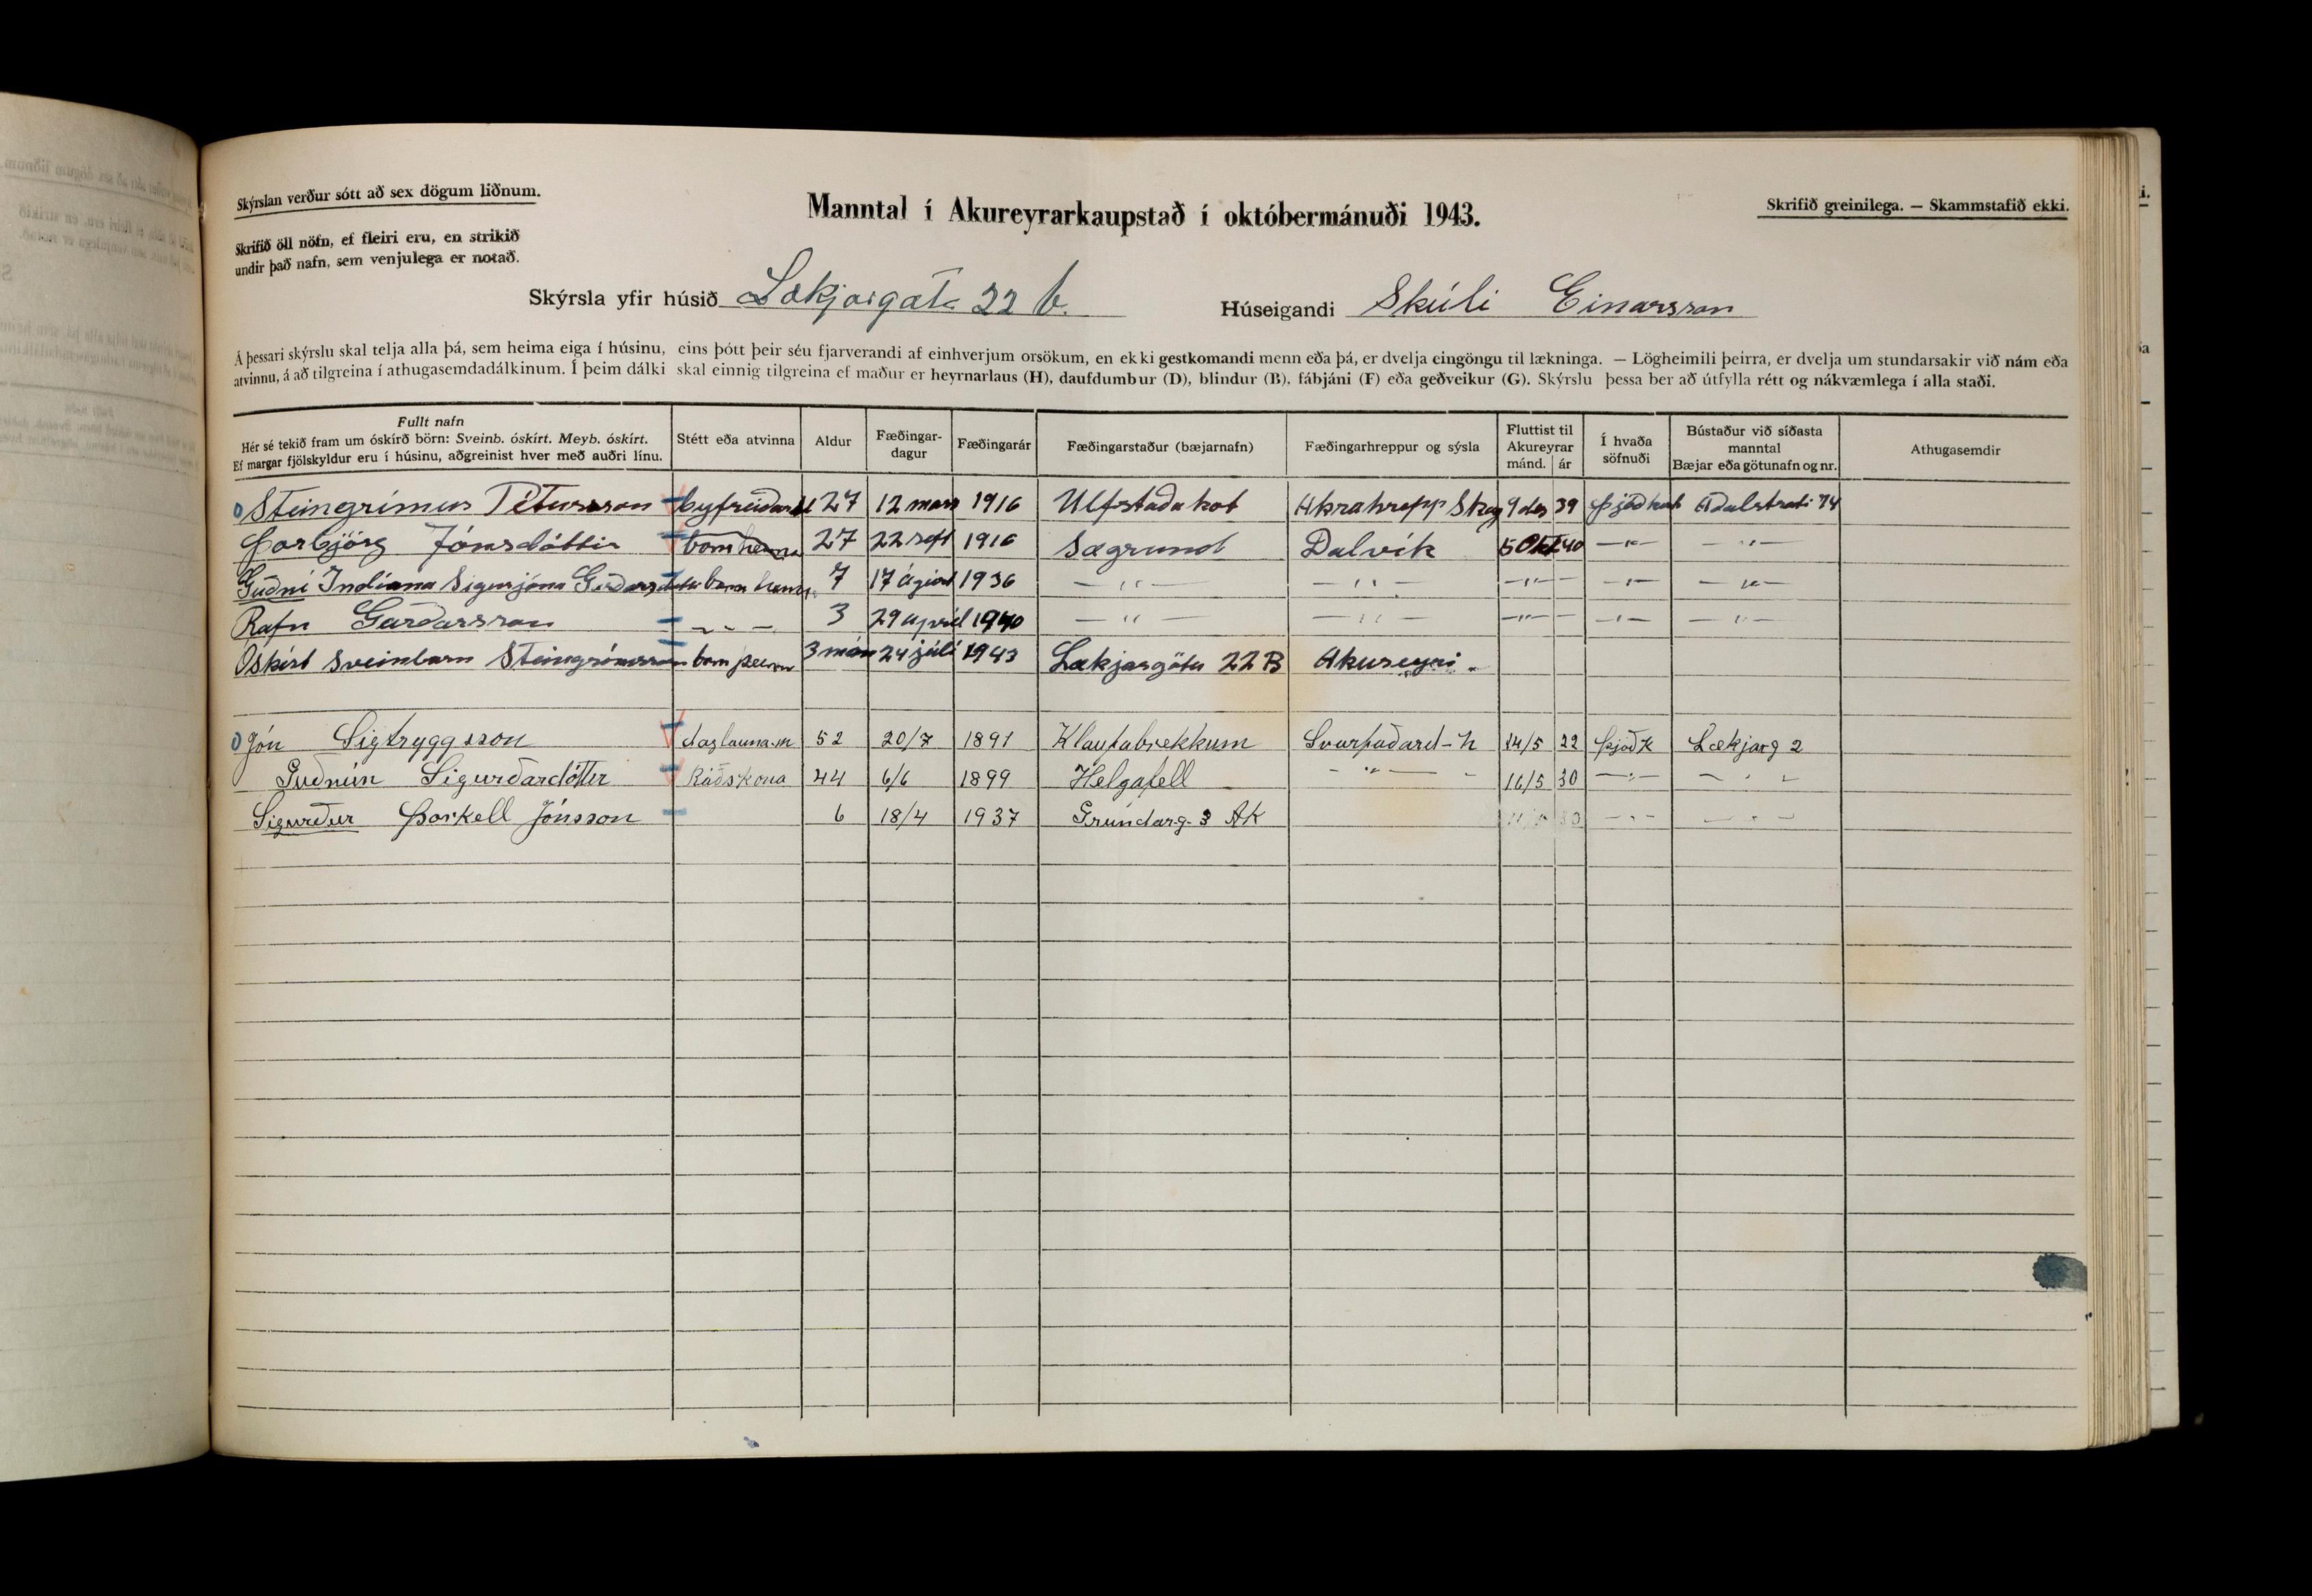 Skýrslan verður sótt að sex dögum liðnum.
Manntal í Akureyrarkaupstað í októbermánuði 1943.
Skrifið greinilega. — Skammstafið ekki.
Skrifið öll nöfn, ef fleiri eru, en strikið
undir það nafn, sem venjulega er notað.
Skýrsla yfir húsið Lækjargata 22 b. Húseigandi Skúli Einarsson
Á þessari skýrslu skal telja alla þá, sem heima eiga í húsinu, eins þótt þeir séu fjarverandi af einhverjum orsökum, en ekki gestkomandi menn eða þá, er dvelja eingöngu til lækninga. — Lögheimili þeirra, er dvelja um stundarsakir við nám eða
atvinnu, á að tilgreina í athugasemdadálkinum. Í þeim dálki skal einnig tilgreina ef maður er heyrnarlaus (H), daufdumbur (D), blindur (B), fábjáni (F) eða geðveikur (G). Skýrslu þessa ber að útfylla rétt og nákvæmlega í alla staði.
Fullt nafn
Hér sé tekið fram um óskírð börn: Sveinb. óskírt. Meyb. óskírt.
Ef margar fjölskyldur eru í húsinu, aðgreinist hver með auðri línu.
Stétt eða atvinna
Aldur
Fæðingar-
dagur
Fæðingarár
Fæðingarstaður (bæjarnafn)
Fæðingarhreppur og sýsla
Fluttist til
Akureyrar
mánd. ár
Í hvaða
söfnuði
Bústaður við síðasta
manntal
Bæjar eða götunafn og nr.
Athugasemdir
Steingrímur Pétursson 27 12 mars 1916 Ulfstadakot Akrahrepp Skag 9 des 39 Aðalstrati 14
Þorbjörg Jónsdóttir 27 22 sept 1916 Sægrund Dalvík 5 Okt 40 —"— —"—
Guðní Indíana Sigurjóna 7 17 ágúst 1936 —"— —"— —"— —"— —"—
Rafn Garðarsson —"— 3 29 apríl 1940 —"— —"— —"— —"— —"—
Óskírt Sveinbarn Steingrímsson barn þeirra 3 mán 24 júlí 1943 Lækjargötu 22 B Akureyri.
Jón Sigtryggsson daglauna-m 52 20/7 1891 Klaufabrekkum Svarfaðard-h 14/5 22 Þjóðk Lækjarg 2
Guðrún Sigurðardóttir Ráðskona 44 6/6 1899 Helgafell —"— 16/5 30 —"— —"—
Sigurður Þorkell Jónsson 6 18/4 1937 Grundarg. 3 Ak —"— —"—